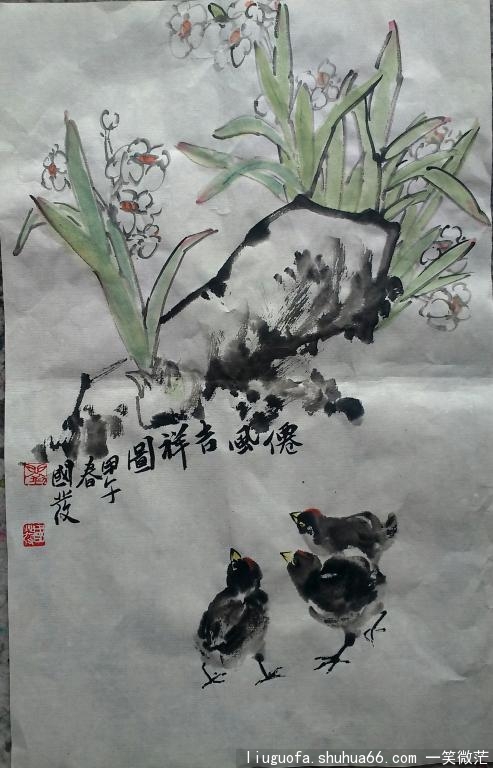 僊風吉祥圖
甲午
春
國發
liuguofa.shuhua66.com 一笑微茫